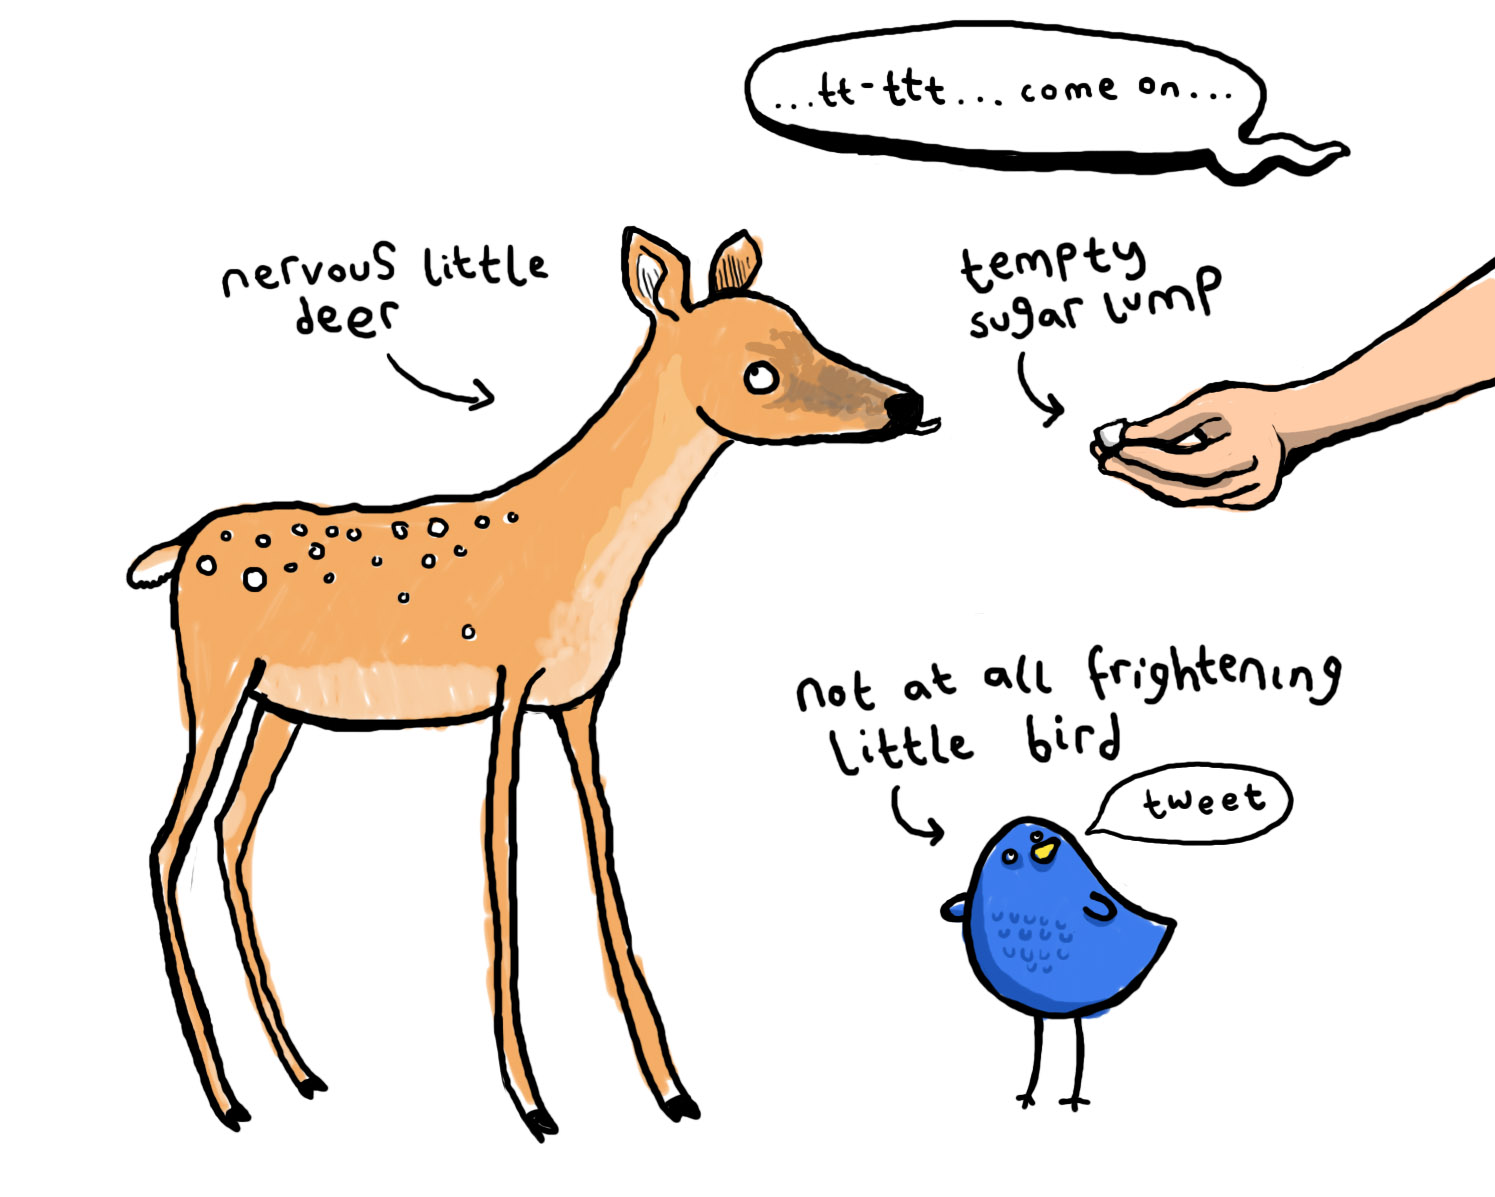 ...tt-ttt... come on...
nervous little
deer
tempty
sugar lump
not at all frightening
little bird
tweet